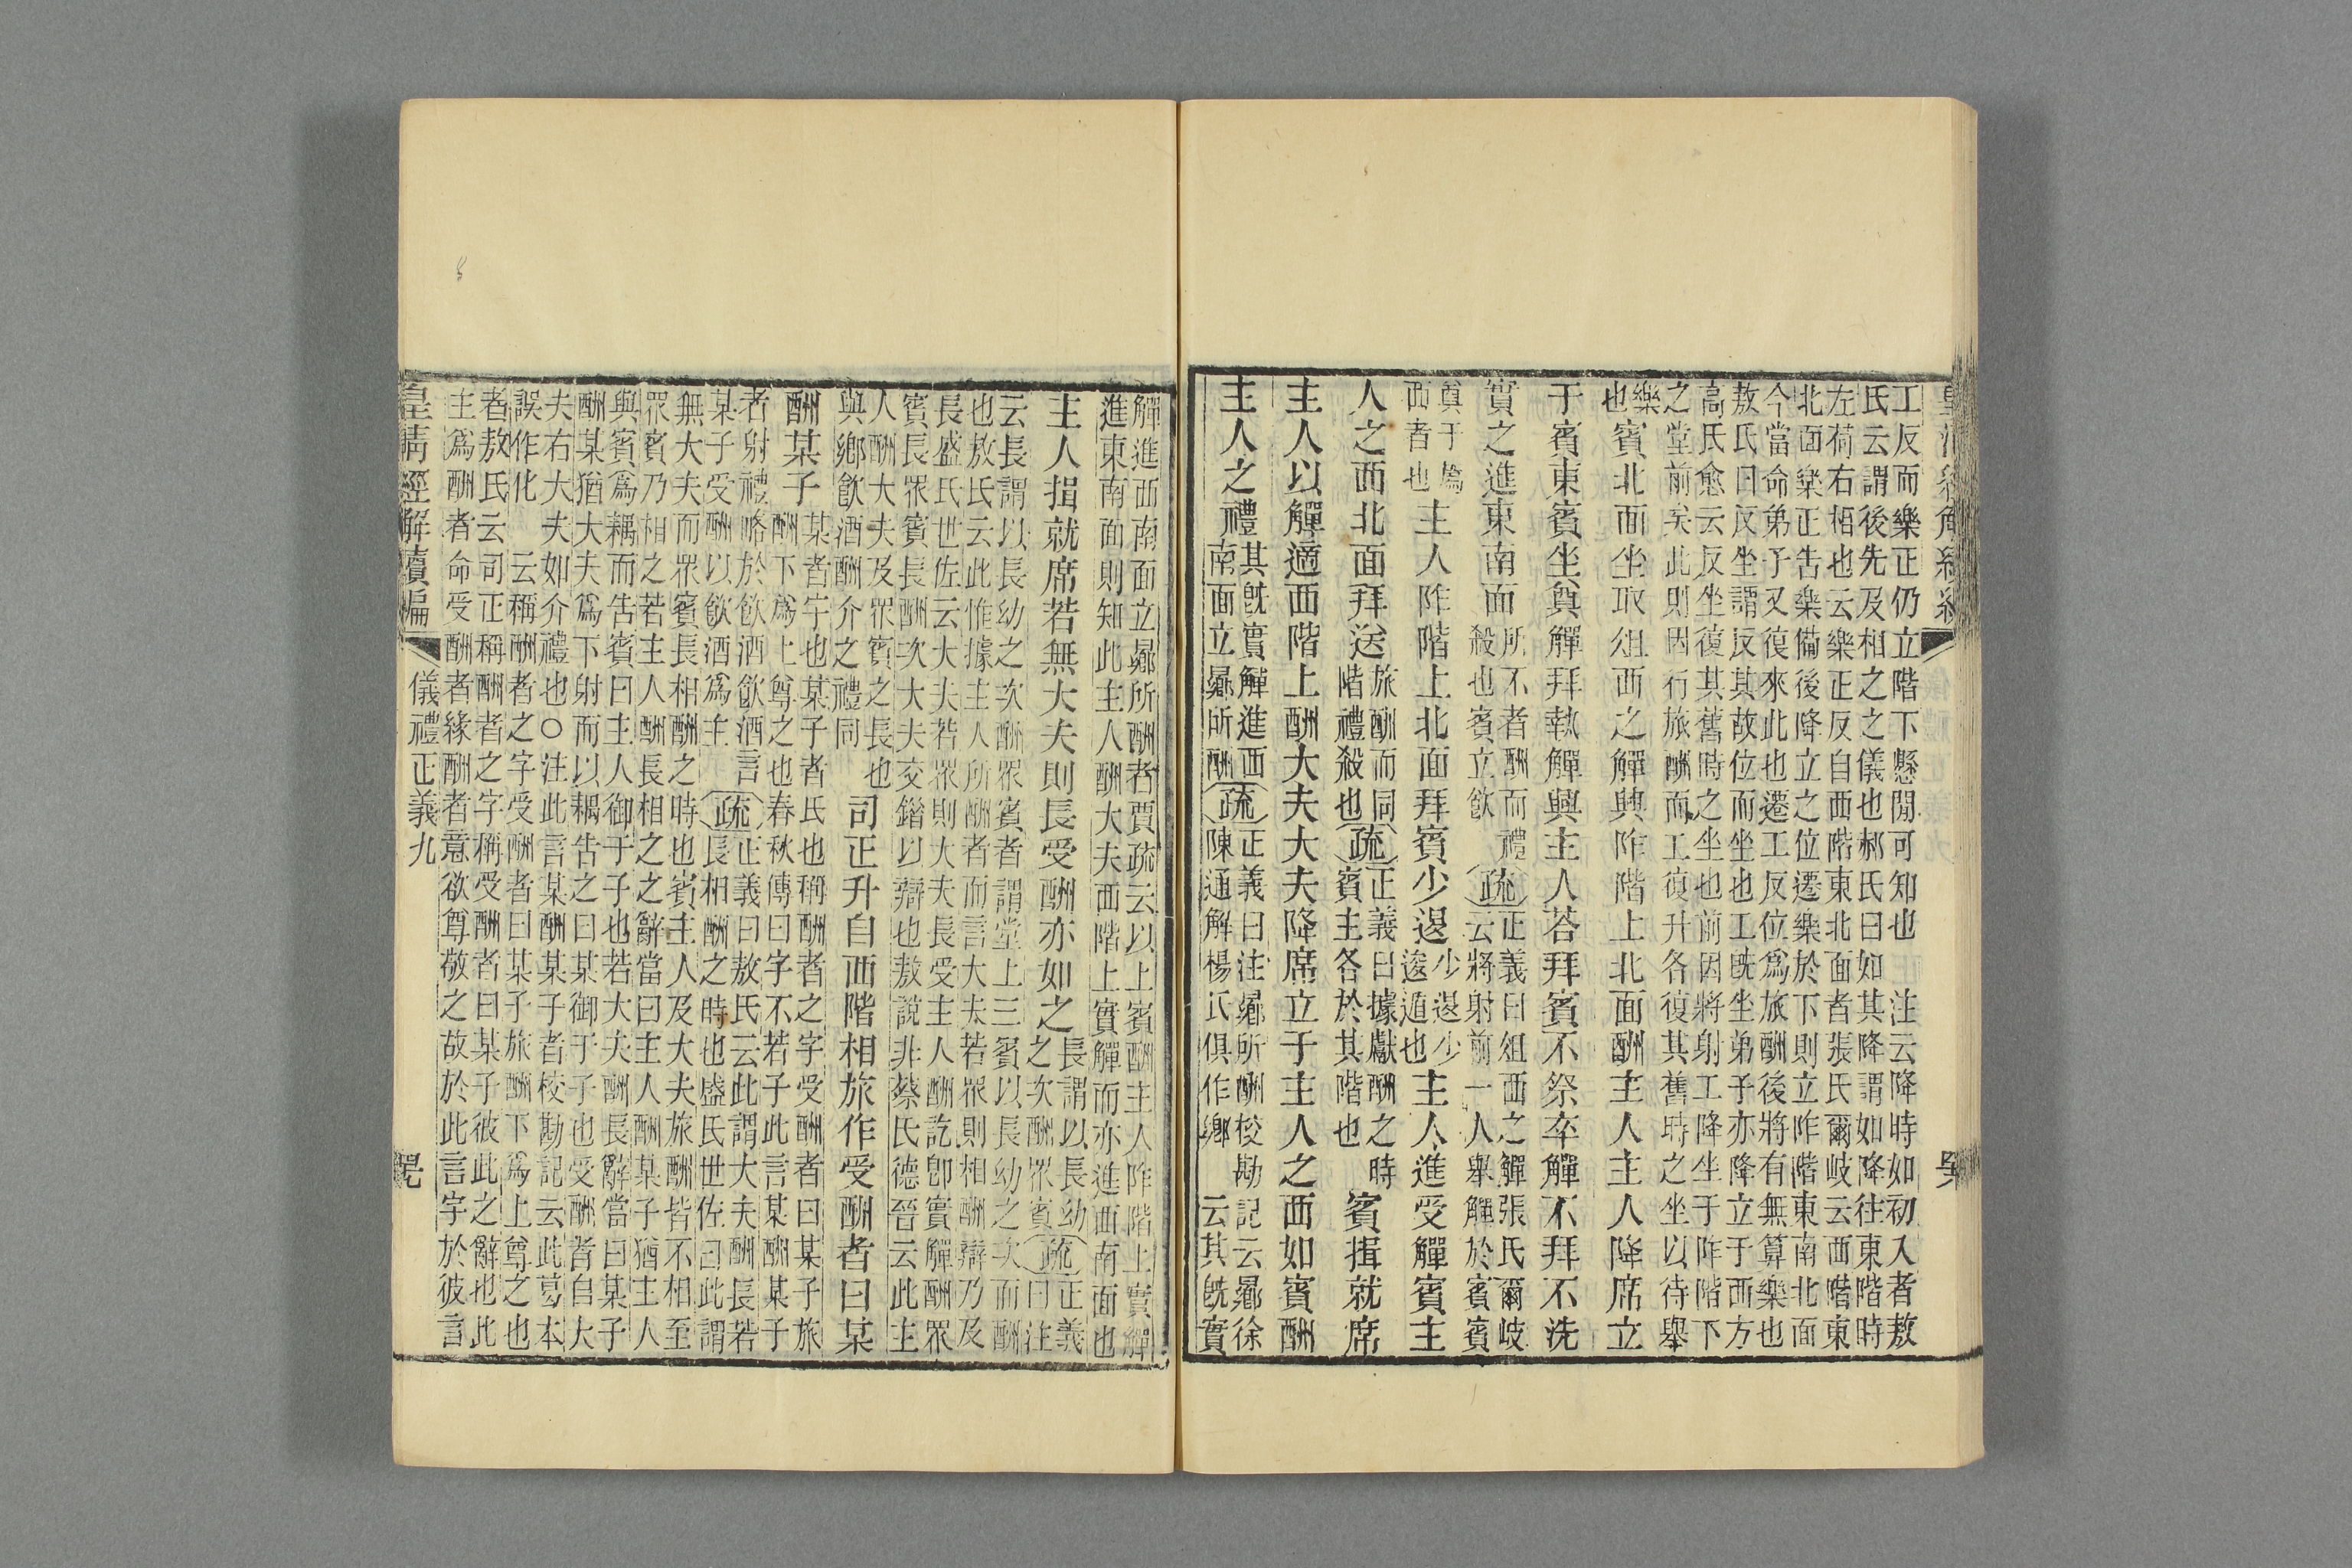 工反而樂正仍立階下懸閒可知也　注云降時如初入者敖
氏云謂後先及相之之儀也郝氏曰如其降謂如降往東階時
左荷右相也云樂正反自西階東北面者張氏爾岐云西階東
北面樂正告樂備後降立之位遷樂於下則立阼階東南北面
今當命弟子又復來此也遷工反位爲旅酬後將有無算樂也
敖氏曰反坐謂反其故位而坐也工旣坐弟子亦降立于西方
高氏愈云反坐復其舊時之坐也前因將射工降坐于阼階下
之堂前矣此則因行旅酬而工復升各復其舊時之坐以待舉
樂也　賓北面坐取俎西之觶興阼階上北面酬主人主人降席立
于賓東賓坐奠觶拜執觶興主人荅拜賓不祭卒觶不拜不洗
實之進東南面　所不者酬而禮殺也賓立飲　疏　正義曰俎西之觶張氏爾岐云將射前一人舉觶於賓賓
奠于薦西者也　主人阼階上北面拜賓少退　少退少逡遁也　主人進受觶賓主
人之西北面拜送　旅酬而同階禮殺也　疏　正義曰據獻酬之時賓主各於其階也　賓揖就席
主人以觶適西階上酬大夫大夫降席立于主人之西如賓酬
主人之禮　其旣實觶進西南面立曏所酬　疏　正義曰注曏所酬校勘記云曏徐陳通解楊氏俱作鄉　云其旣實
觶進西南面立曏所酬者賈疏云以上賓酬主人阼階上實觶
進東南面則知此主人酬大夫西階上實觶而亦進西南面也
主人揖就席若無大夫則長受酬亦如之　長謂以長幼之次酬眾賓　疏　正義曰注
云長謂以長幼之次酬眾賓者謂堂上三賓以長幼之次而酬
也敖氏云此惟據主人所酬者而言大夫若眾則相酬辯乃及
長盛氏世佐云大夫若眾則大夫長受主人酬訖卽實觶酬眾
賓長眾賓長酬次大夫交錯以辯也敖說非蔡氏德晉云此主
人酬大夫及眾賓之長也與鄉飮酒酬介之禮同　司正升自西階相旅作受酬者曰某
酬某子　某者字也某子者氏也稱酬者之字受酬者曰某子旅
酬下爲上尊之也春秋傳曰字不若子此言某酬某子
者射禮略於飮酒飮酒言某子受酬以飮酒爲主　疏　正義曰敖氏云此謂大夫酬長若長相酬之時也盛氏世佐曰此謂
無大夫而眾賓長相酬之時也賓主人及大夫旅酬皆不相至
眾賓乃相之若主人酬長相之之辭當曰主人酬某子猶主人
與賓爲耦而告賓曰主人御于子也若大夫酬長辭當曰某子
酬某猶大夫爲下射而以耦告之曰某御于子也受酬者自大
夫右大夫如介禮也○注此言某酬某子者校勘記云此葛本
誤作化　云稱酬者之字受酬者曰某子旅酬下爲上尊之也
者敖氏云司正稱酬者之字稱受酬者曰某子彼此之辭也此
主爲酬者命受酬者緣酬者意欲尊敬之故於此言字於彼言
皇清經解續編　儀禮正義九